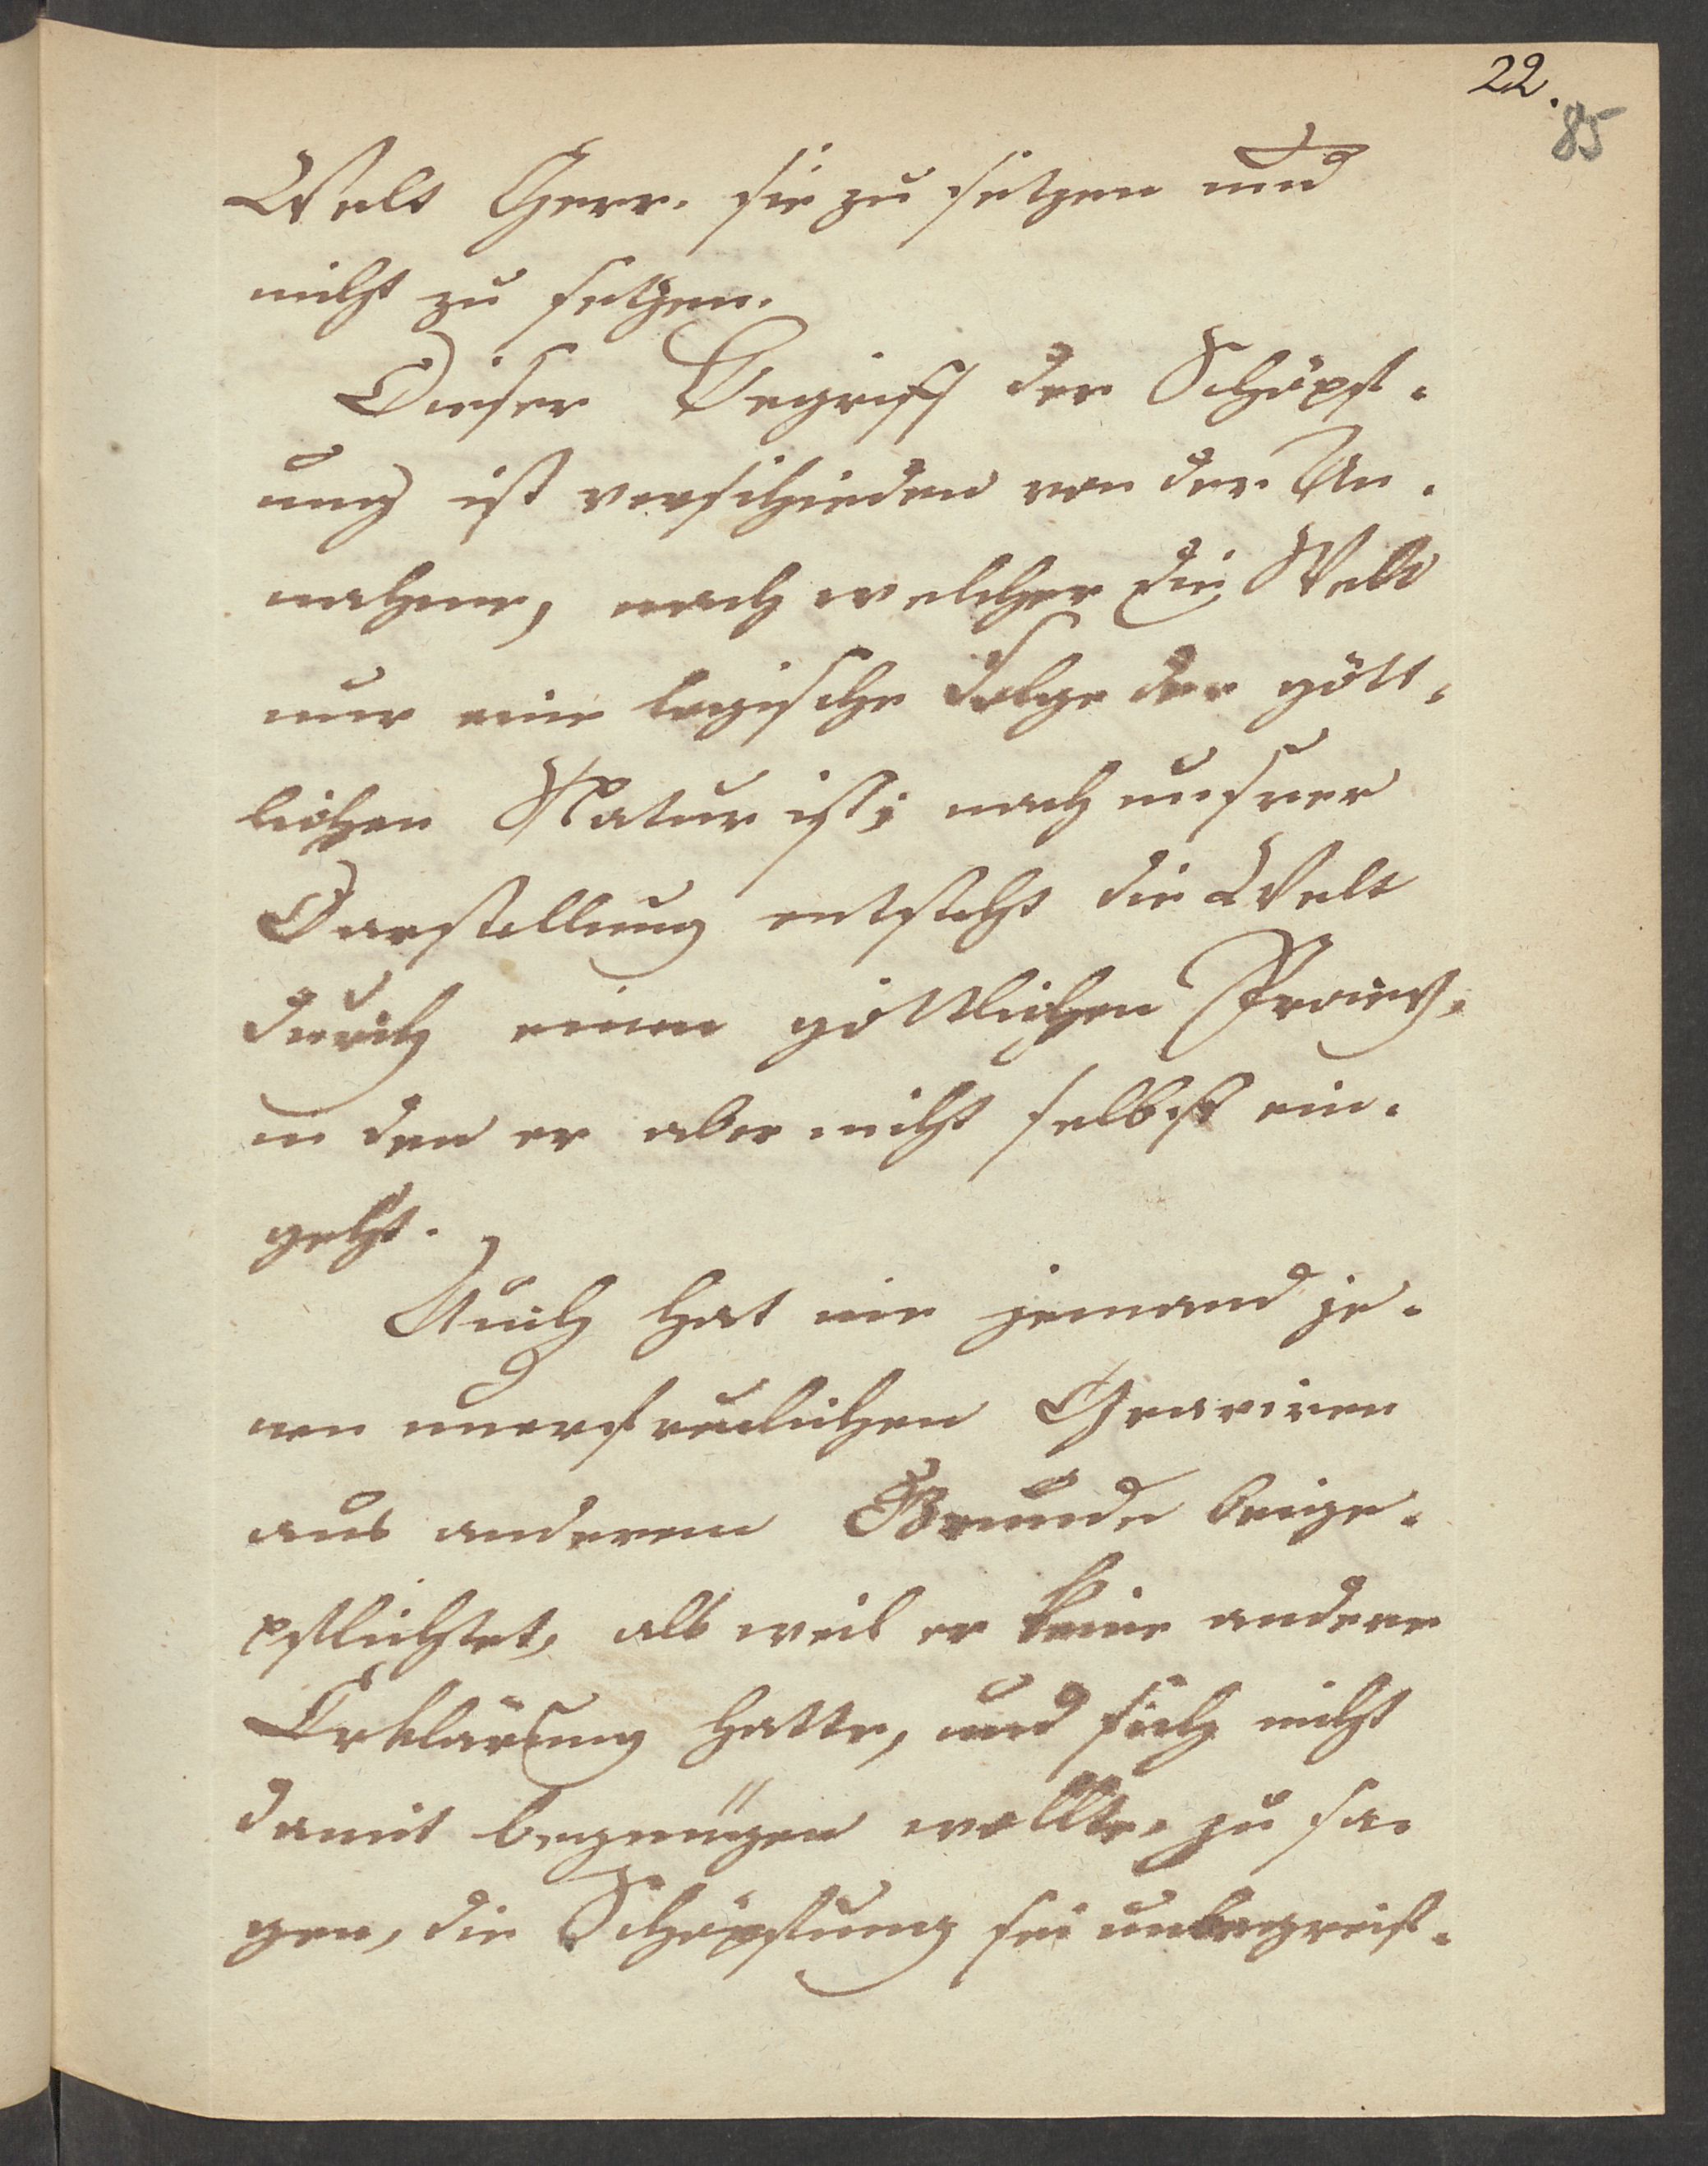 22.
85
Welt Herr. sie zu setzen und
nicht zu setzen.
Dieser Begriff der Schöpf-
ung ist verschieden von der An-
nahme, nach welcher die Welt
nur eine logische Folge der gött-
lichen Natur ist; nach unsrer
Darstellung entsteht die Welt
durch einen göttlichen Proceß,
in den er aber nicht selbst ein-
geht.
Auch hat nie jemand je-
nen unerfreulichen
aus anderem Grunde beige-
pflichtet, als weil er keine andere
Erklärung hatte, und sich nicht
damit begnügen wollte, zu sa-
gen, die Schöpfung sei unbegreif-